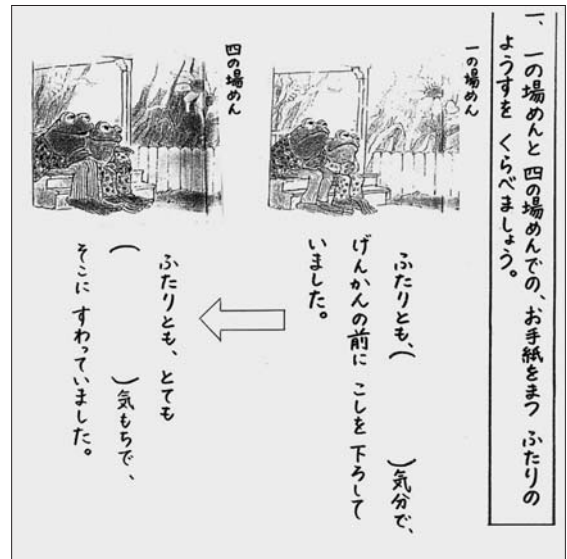 一、一の場めんと四の場めんでの、お手紙をまつ ふたりの
ようすを くらべましょう。
一の場めん
ふたりとも、（　　　）気分で、
げんかんの前に こしを 下ろして
いました。
四の場めん
ふたりとも、とても
（　　　）気もちで、
そこに すわっていました。